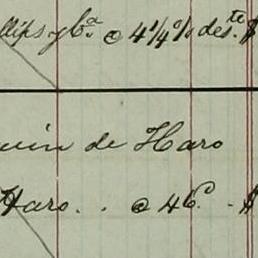 llips y Cª. @ 4¼% des.te $
uin de Haro
Haro. . @ 4 C. - $